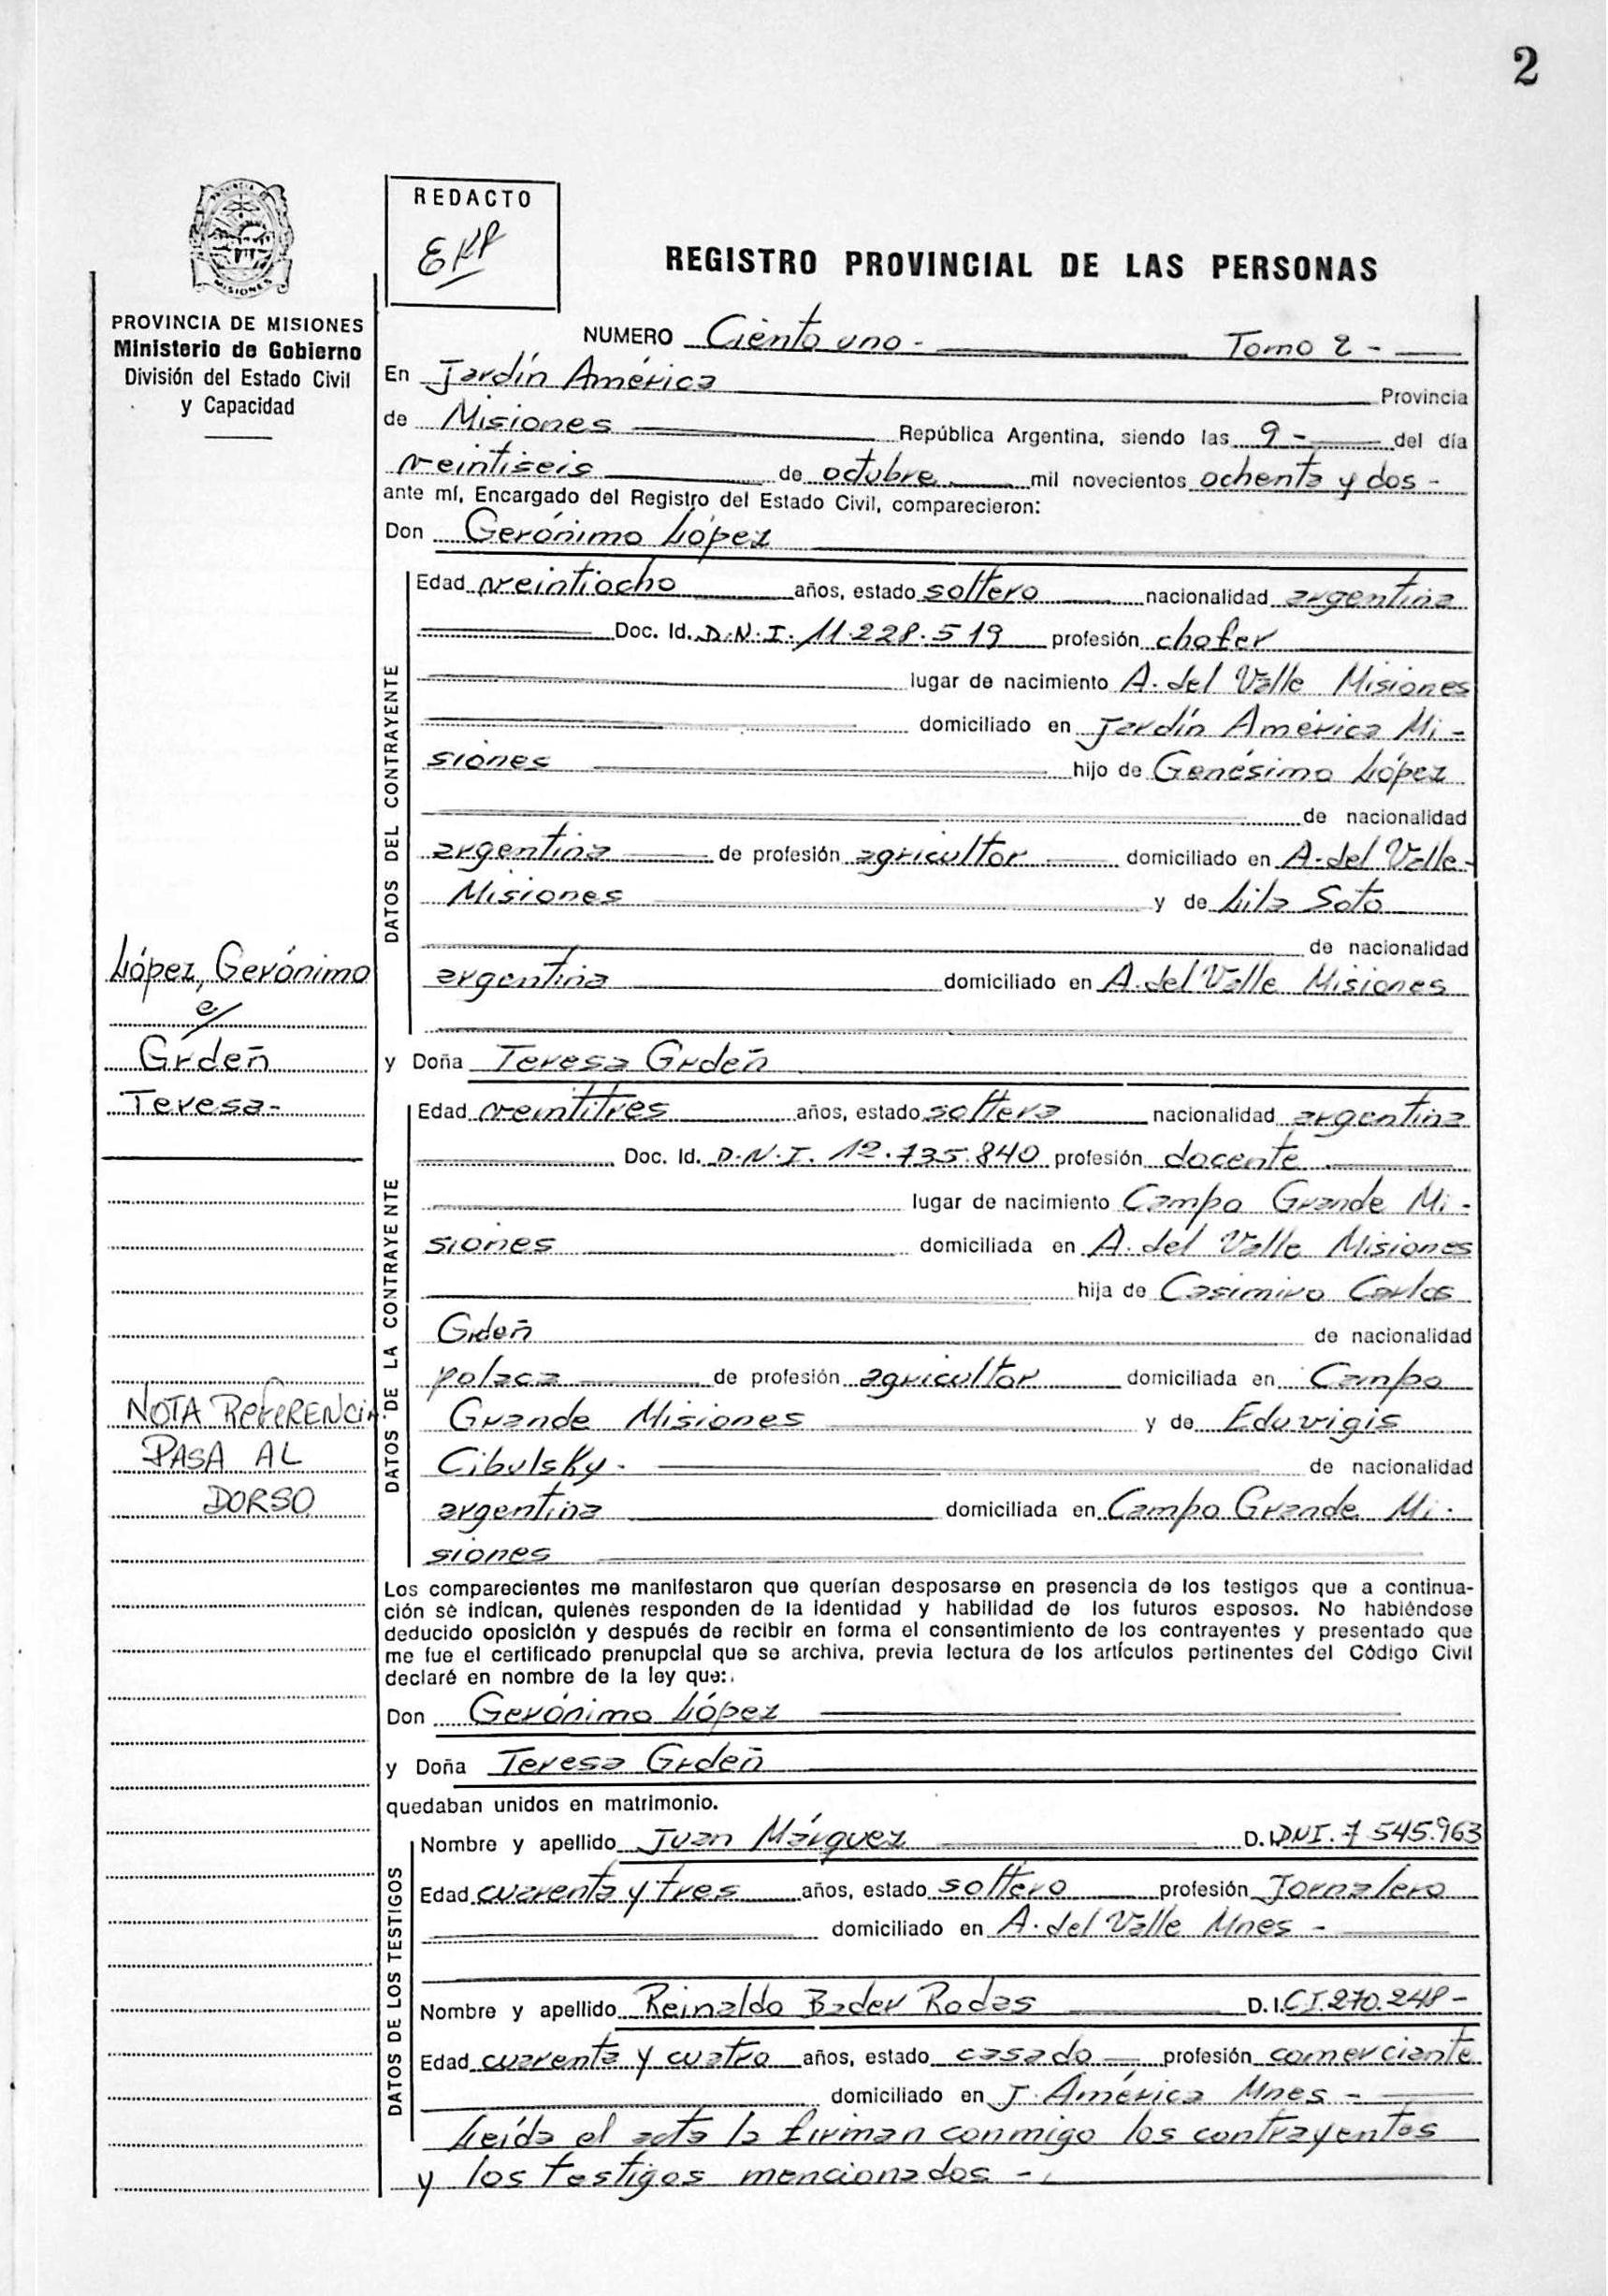 2
REDACTO
REGISTRO PROVINCIAL DE LAS PERSONAS
PROVINCIA DE MISIONES
Ministerio de Gobierno
División del Estado Civil
y Capacidad
NUMERO Ciento uno - Tomo 2 -
En Jardín América Provincia
de Misiones República Argentina, siendo las 9 - del día
veintiseis de octubre mil novecientos ochenta y dos -
ante mí, Encargado del Registro del Estado Civil, comparecieron:
Don Gerónimo López
DATOS DEL CONTRAYENTE
Edad veintiocho años, estado soltero nacionalidad argentina
Doc. Id. D.N.I. 11.228.519 profesión chofer
lugar de nacimiento A. del Valle Misiones
domiciliado en Jardín América Mi -
siones hijo de Genésimo López
de nacionalidad
argentina de profesión agricultor domiciliado en A. del Valle -
Misiones y de Lila Soto
de nacionalidad
argentina domiciliado en A. del Valle Misiones
López, Gerónimo
c/
Grdeñ
Teresa-
y Doña Teresa Grdeñ
DATOS DE LA CONTRAYENTE
Edad veintitres años, estado soltera nacionalidad argentina
Doc. Id. D.N.I. 12.735.840 profesión docente
lugar de nacimiento Campo Grande Mi -
siones domiciliada en A. del Valle Misiones
hija de Casimiro Carlos
Grdeñ de nacionalidad
polaca de profesión agricultor domiciliada en Campo
Grande Misiones y de Eduvigis
Cibulsky. de nacionalidad
argentina domiciliada en Campo Grande Mi -
siones
NOTA REFERENCIA
PASA AL
DORSO
Los comparecientes me manifestaron que querían desposarse en presencia de los testigos que a continua-
ción se indican, quienes responden de la identidad y habilidad de los futuros esposos. No habiéndose
deducido oposición y después de recibir en forma el consentimiento de los contrayentes y presentado que
me fue el certificado prenupcial que se archiva, previa lectura de los artículos pertinentes del Código Civil
declaré en nombre de la ley que:
Don Gerónimo López
y Doña Teresa Grdeñ
quedaban unidos en matrimonio.
DATOS DE LOS TESTIGOS
Nombre y apellido Juan Márquez D.I. DNI. 7 545.963
Edad cuarenta y tres años, estado soltero profesión Jornalero
domiciliado en A. del Valle Mnes -
Nombre y apellido Reinaldo Bader Rodas D.I. CI. 270.248 -
Edad cuarenta y cuatro años, estado casado profesión comerciante
domiciliado en J. América Mnes -
Leída el acta la firman conmigo los contrayentes
y los testigos mencionados -